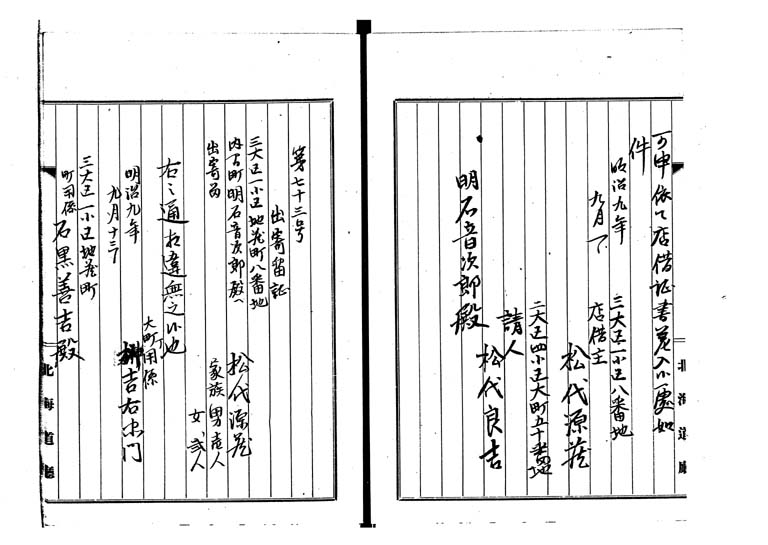 可申依て店借証書差入候処如
件
明治九年
九月
三大区一小区八番地
店借主
松代源蔵
二大区四小区大町五十番地
請人
松代良吉
明石音次郎殿
北海道庁
第七十三号
出寄留証
三大区一小区地蔵町八番地
内古町明石音次郎殿へ
出寄留
松代源蔵
家族男壱人
女弐人
右之通相違無之候也
明治九年
九月十三日
大町用係
柳吉右衛門
三大区一小区地蔵町
町用係
石黒善吉殿
北海道庁